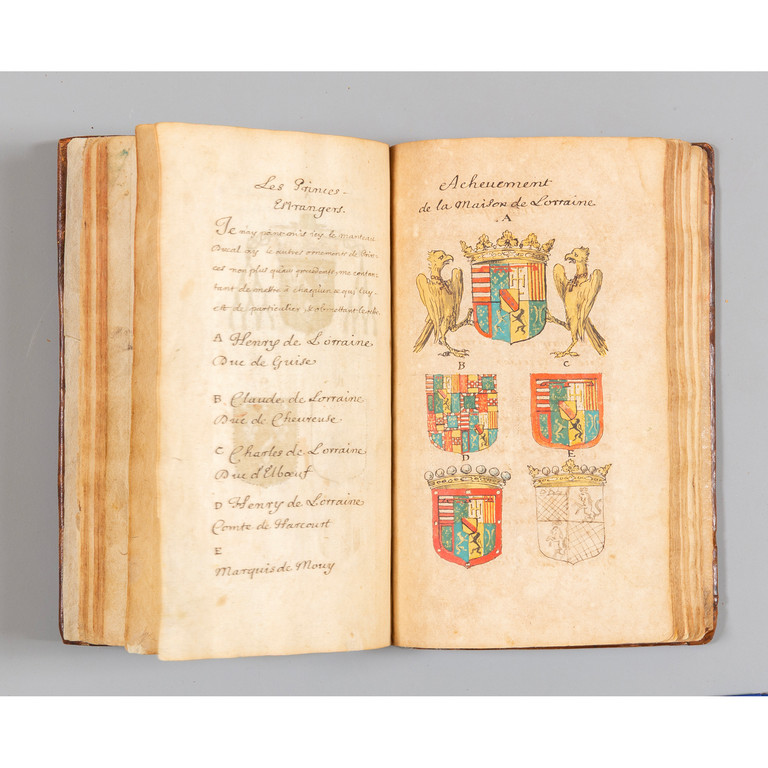 Les Princes
Estrangers.
Je n'ay point mis icy le manteau
Ducal ny les autres ornements de Prin-
ces non plus qu'aux precedents, me conten-
tant de mettre à chaque un ce qu'il ay-
est de particulier,
A Henry de Lorraine
Duc de Guise
B Claude de Lorraine
Duc de Cheureuse
C Charles de Lorraine
Duc d'Elbœuf
D Henry de Lorraine
Comte de Harcourt
E
Marquis de Mouy
Acheuement
de la Maison de Lorraine
A
B C
D E